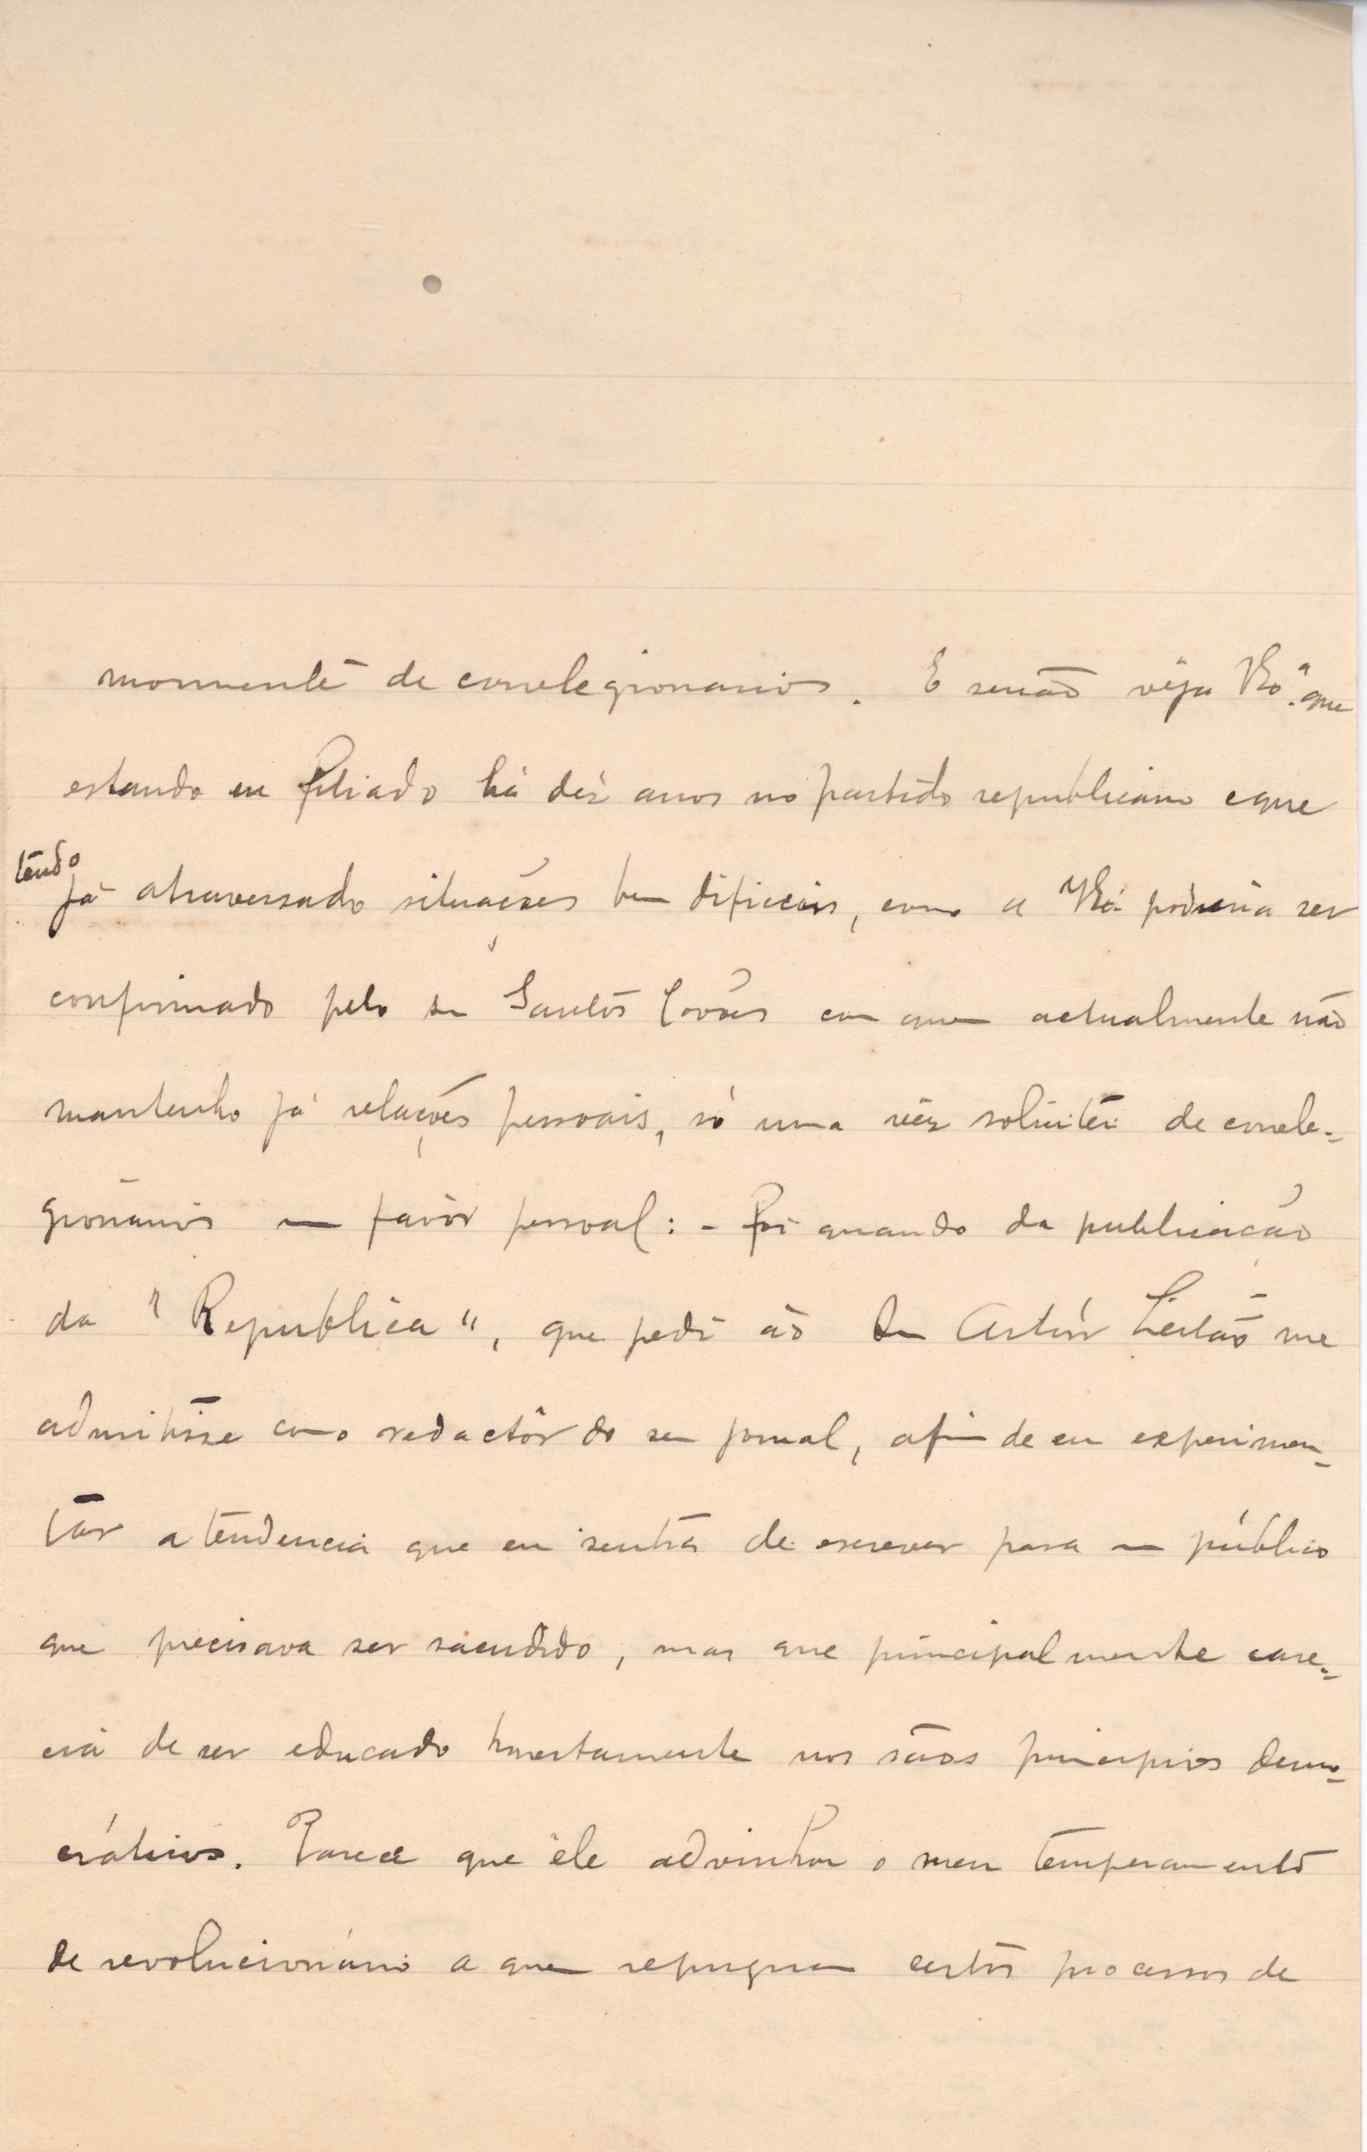 mormente de correlegionarios. E senão veja V. Ex.ª que
estando eu filiado há dez anos no partido republicano e que
tendo
já atravessado situações bem dificeis, como a V. Ex.ª poderia ser
confirmado pelo sr Santos com quem actualmente não
mantenho já relações pessoais, só uma vêz solicitei de correle-
gionários um favôr pessoal: - Foi quando da publicação
da "Republica", que pedi ao Artúr Leitão me
admitisse como redactôr do seu jornal, afim de eu experimen-
tar a tendencia que eu sentia de escrever para um público
que precisava ser sacudido, mas que principalmente care-
cia de ser educado honestamente nos sãos principios demo-
cráticos. Parece que êle advinhou o meu temperamento
de revolucionário a quem repugnam certos processos de